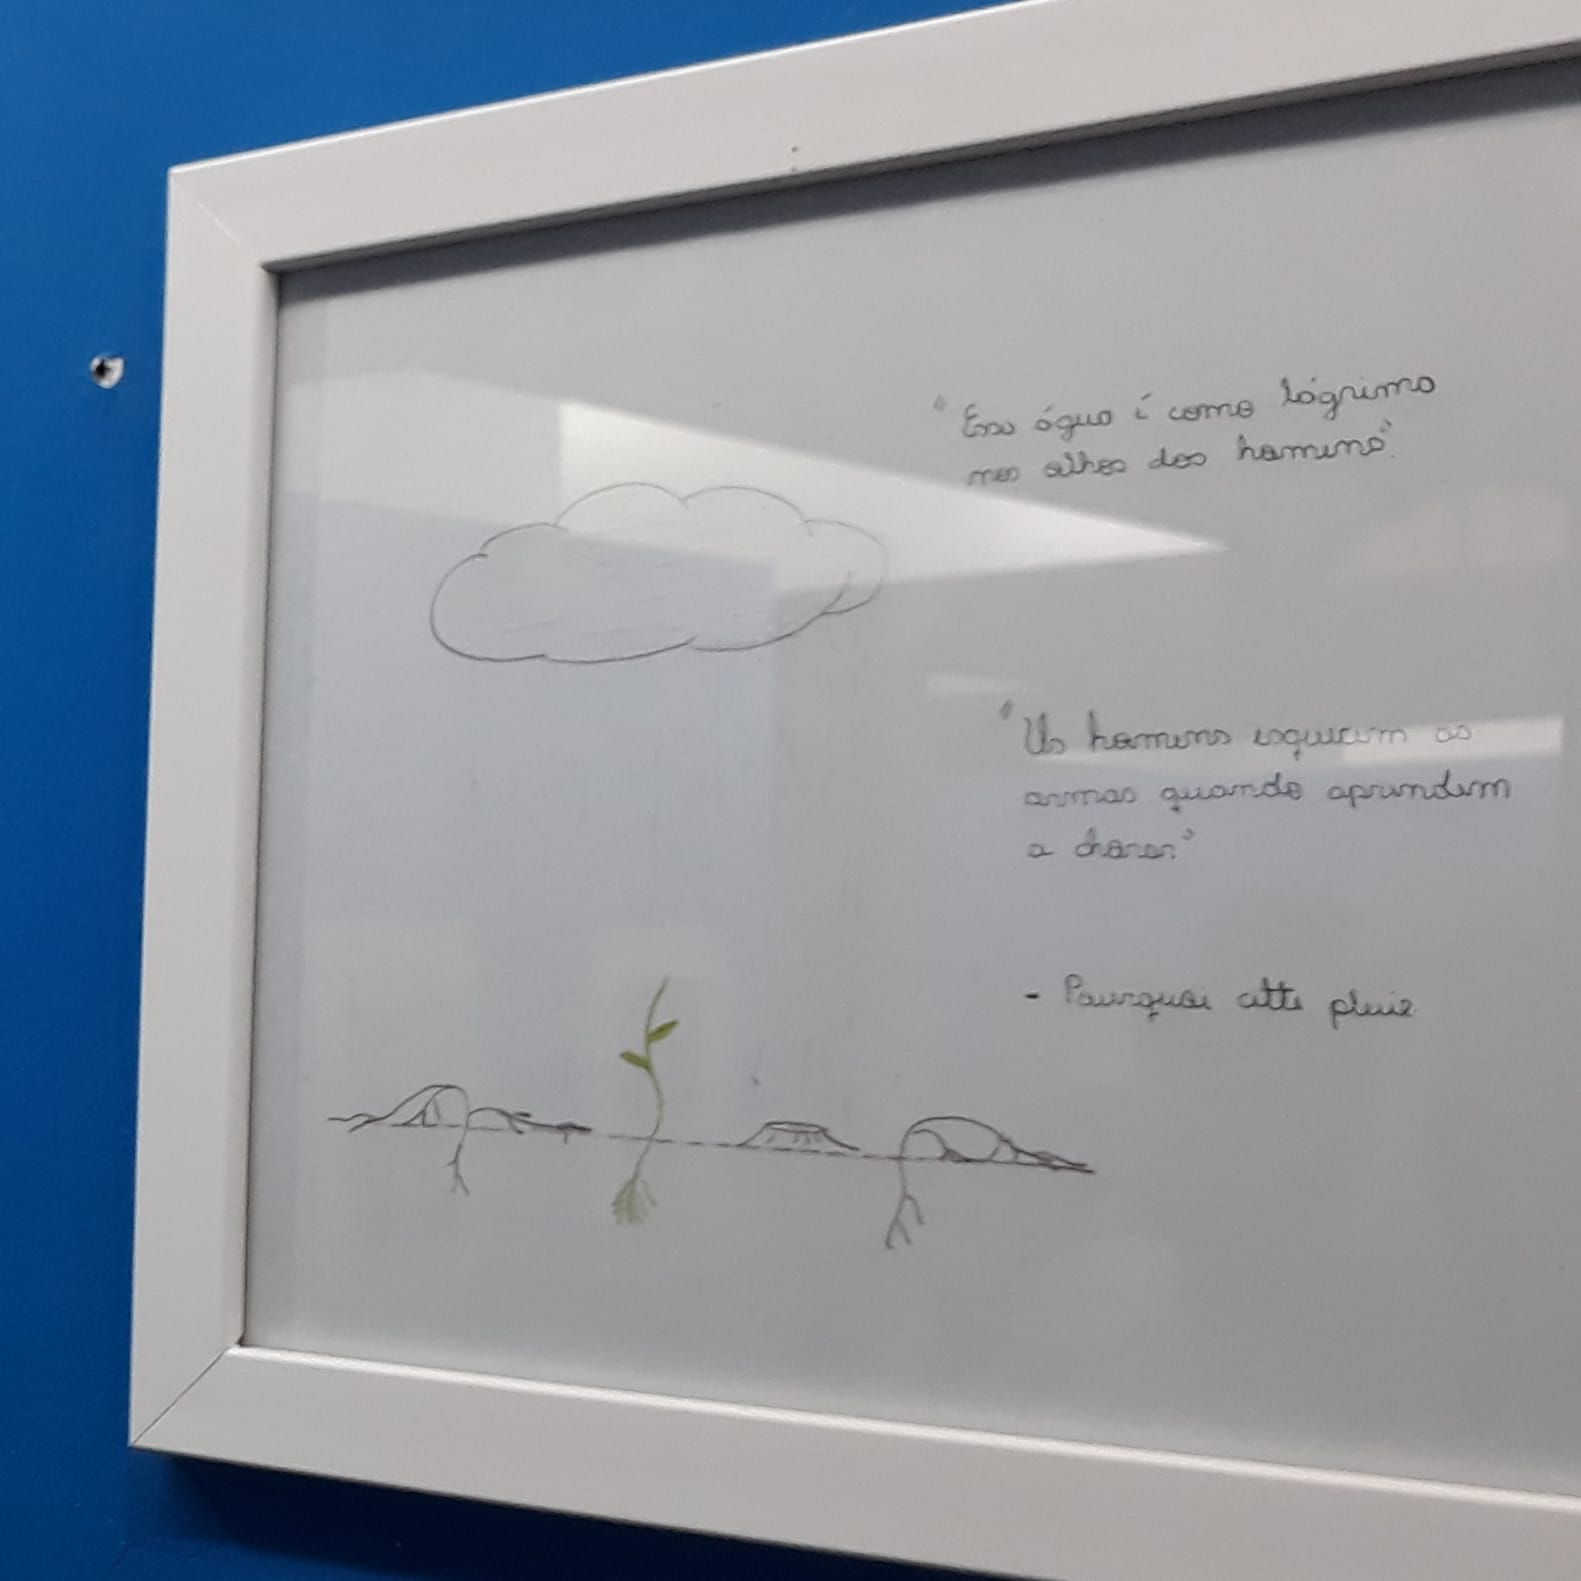 "Essa água é como lágrima
nos olhos dos homens"
"Os homens esquecem as
armas quando aprendem
a chorar"
- Pourquoi cette pluie